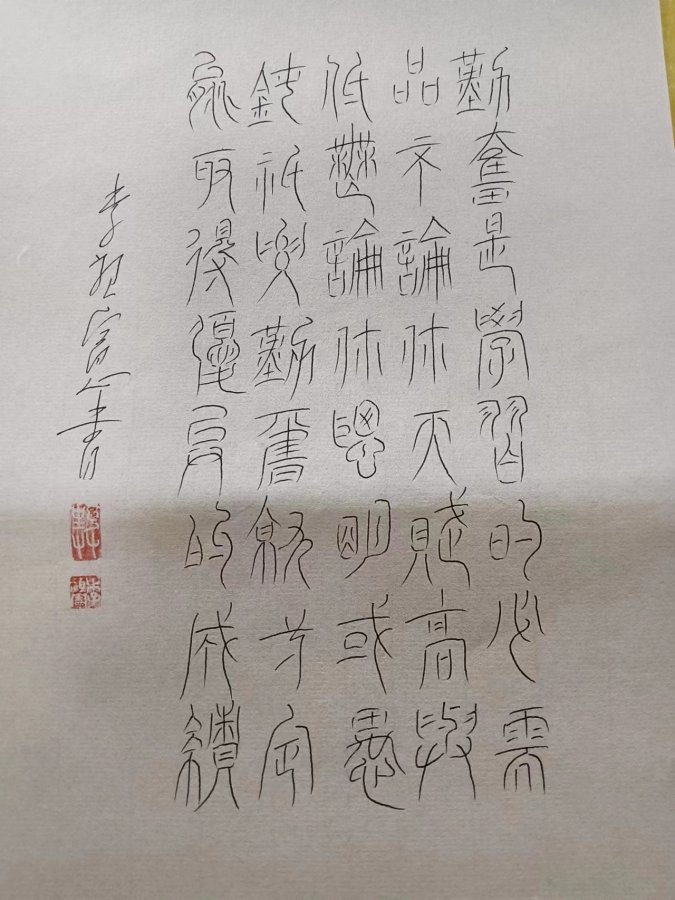 勤奮是學習的必需
品不論你天賦高與
低無論你聰明或愚
鈍祇要勤奮就定
能取得優良的成績
李富書